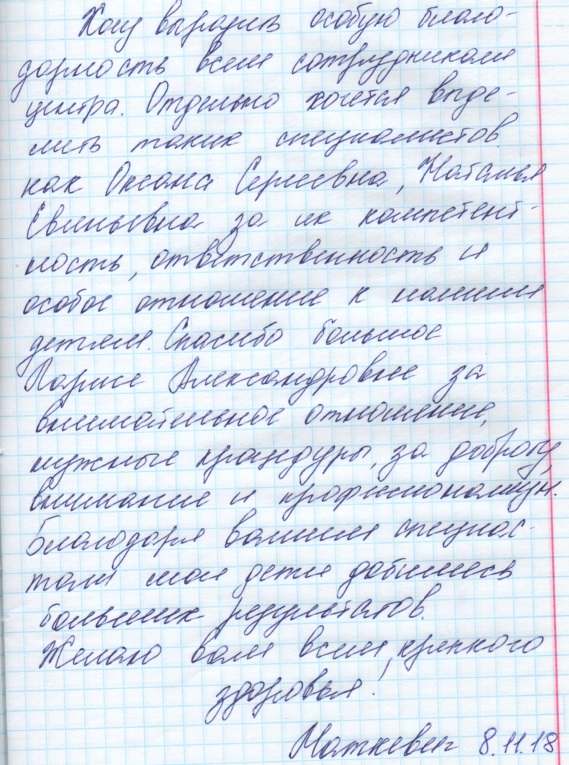 Хочу выразить особую благо-
дарность всем сотрудникам
центра. Отдельно хочется выде-
лить таких специалистов
как Оксана Сергеевна, Наталья
Евгеньевна за их компетент-
ность, ответственность и
особое отношение к нашим
детям. Спасибо большое
Ларисе Александровне за
внимательное отношение,
нужные процедуры, за доброту,
внимание и профессионализм.
Благодаря вашим специалис-
там мои дети добились
больших результатов.
Желаю вам всем крепкого
здоровья!
Маткевич 8.11.18